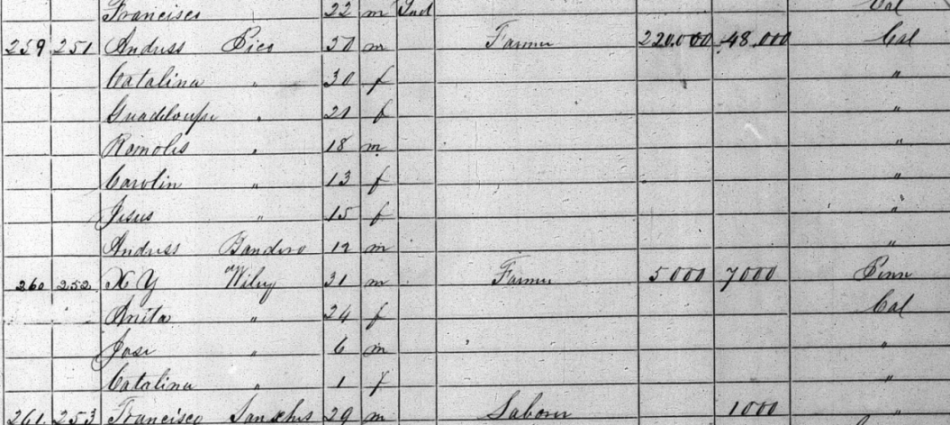 Francisco 22 m Ind Cal
259 251 Andress Pico 50 m Farmer 220.000 48.000 Cal
Catalina " 30 f "
Guadeloupe " 21 f "
Romolis " 18 m "
Carolin " 13 f "
Jesus " 15 f "
Andress Bandero 12 m "
260 252 X Y Wiley 31 m Farmer 5000 7000 Penn
Anita " 24 f Cal
Jose " 6 m "
Catalina " 1 f "
261 253 Francisco Sanches 29 m Laborer 1000 "